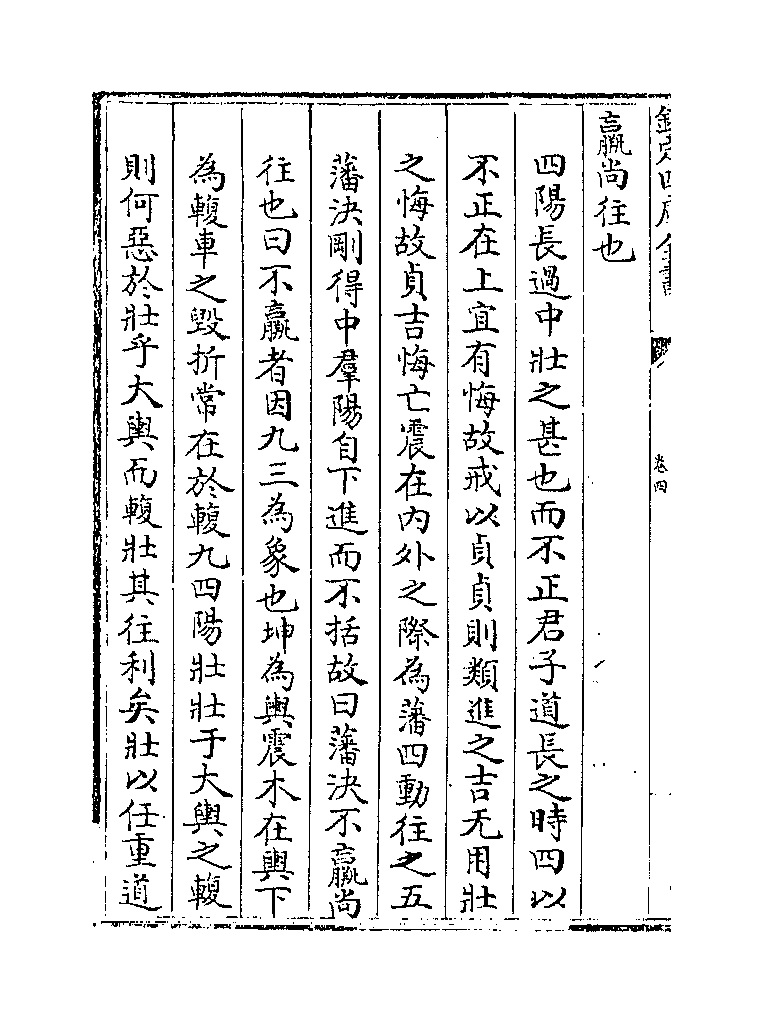 欽定四庫全書
卷四
羸尚往也
四陽長過中壯之甚也而不正君子道長之時四以
不正在上宜有悔故戒以貞貞則類進之吉无用壯
之悔故貞吉悔亡震在内外之際為藩四動往之五
藩決剛得中羣陽自下進而不括故曰藩決不羸尚
往也曰不羸者因九三為象也坤為輿震木在輿下
為輹車之毀折常在於輹九四陽壯壯于大輿之輹
則何惡於壯乎大輿而輹壯其往利矣壯以任重道